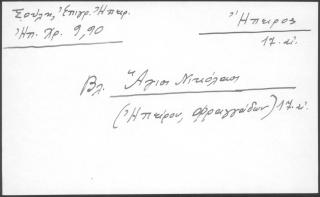 Σούλη, Ἐπιγρ. Ἠπειρ.
Ἠπ. Χρ. 9,90
Ἤπειρος
17. αἰ.
Βλ. Ἅγιος Νικόλαος
(Ἠπείρου, Φραγγάδων) 17 αἰ.